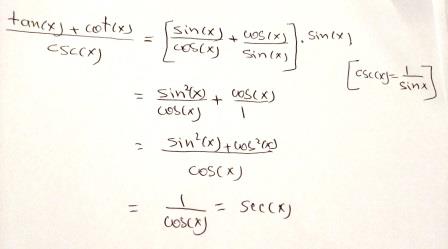 (tan(x) + cot(x))/csc(x) = [sin(x)/cos(x) + cos(x)/sin(x)] · sin(x)
[csc(x) = 1/sinx]
= sin²(x)/cos(x) + cos(x)/1
= (sin²(x) + cos²(x))/cos(x)
= 1/cos(x) = sec(x)